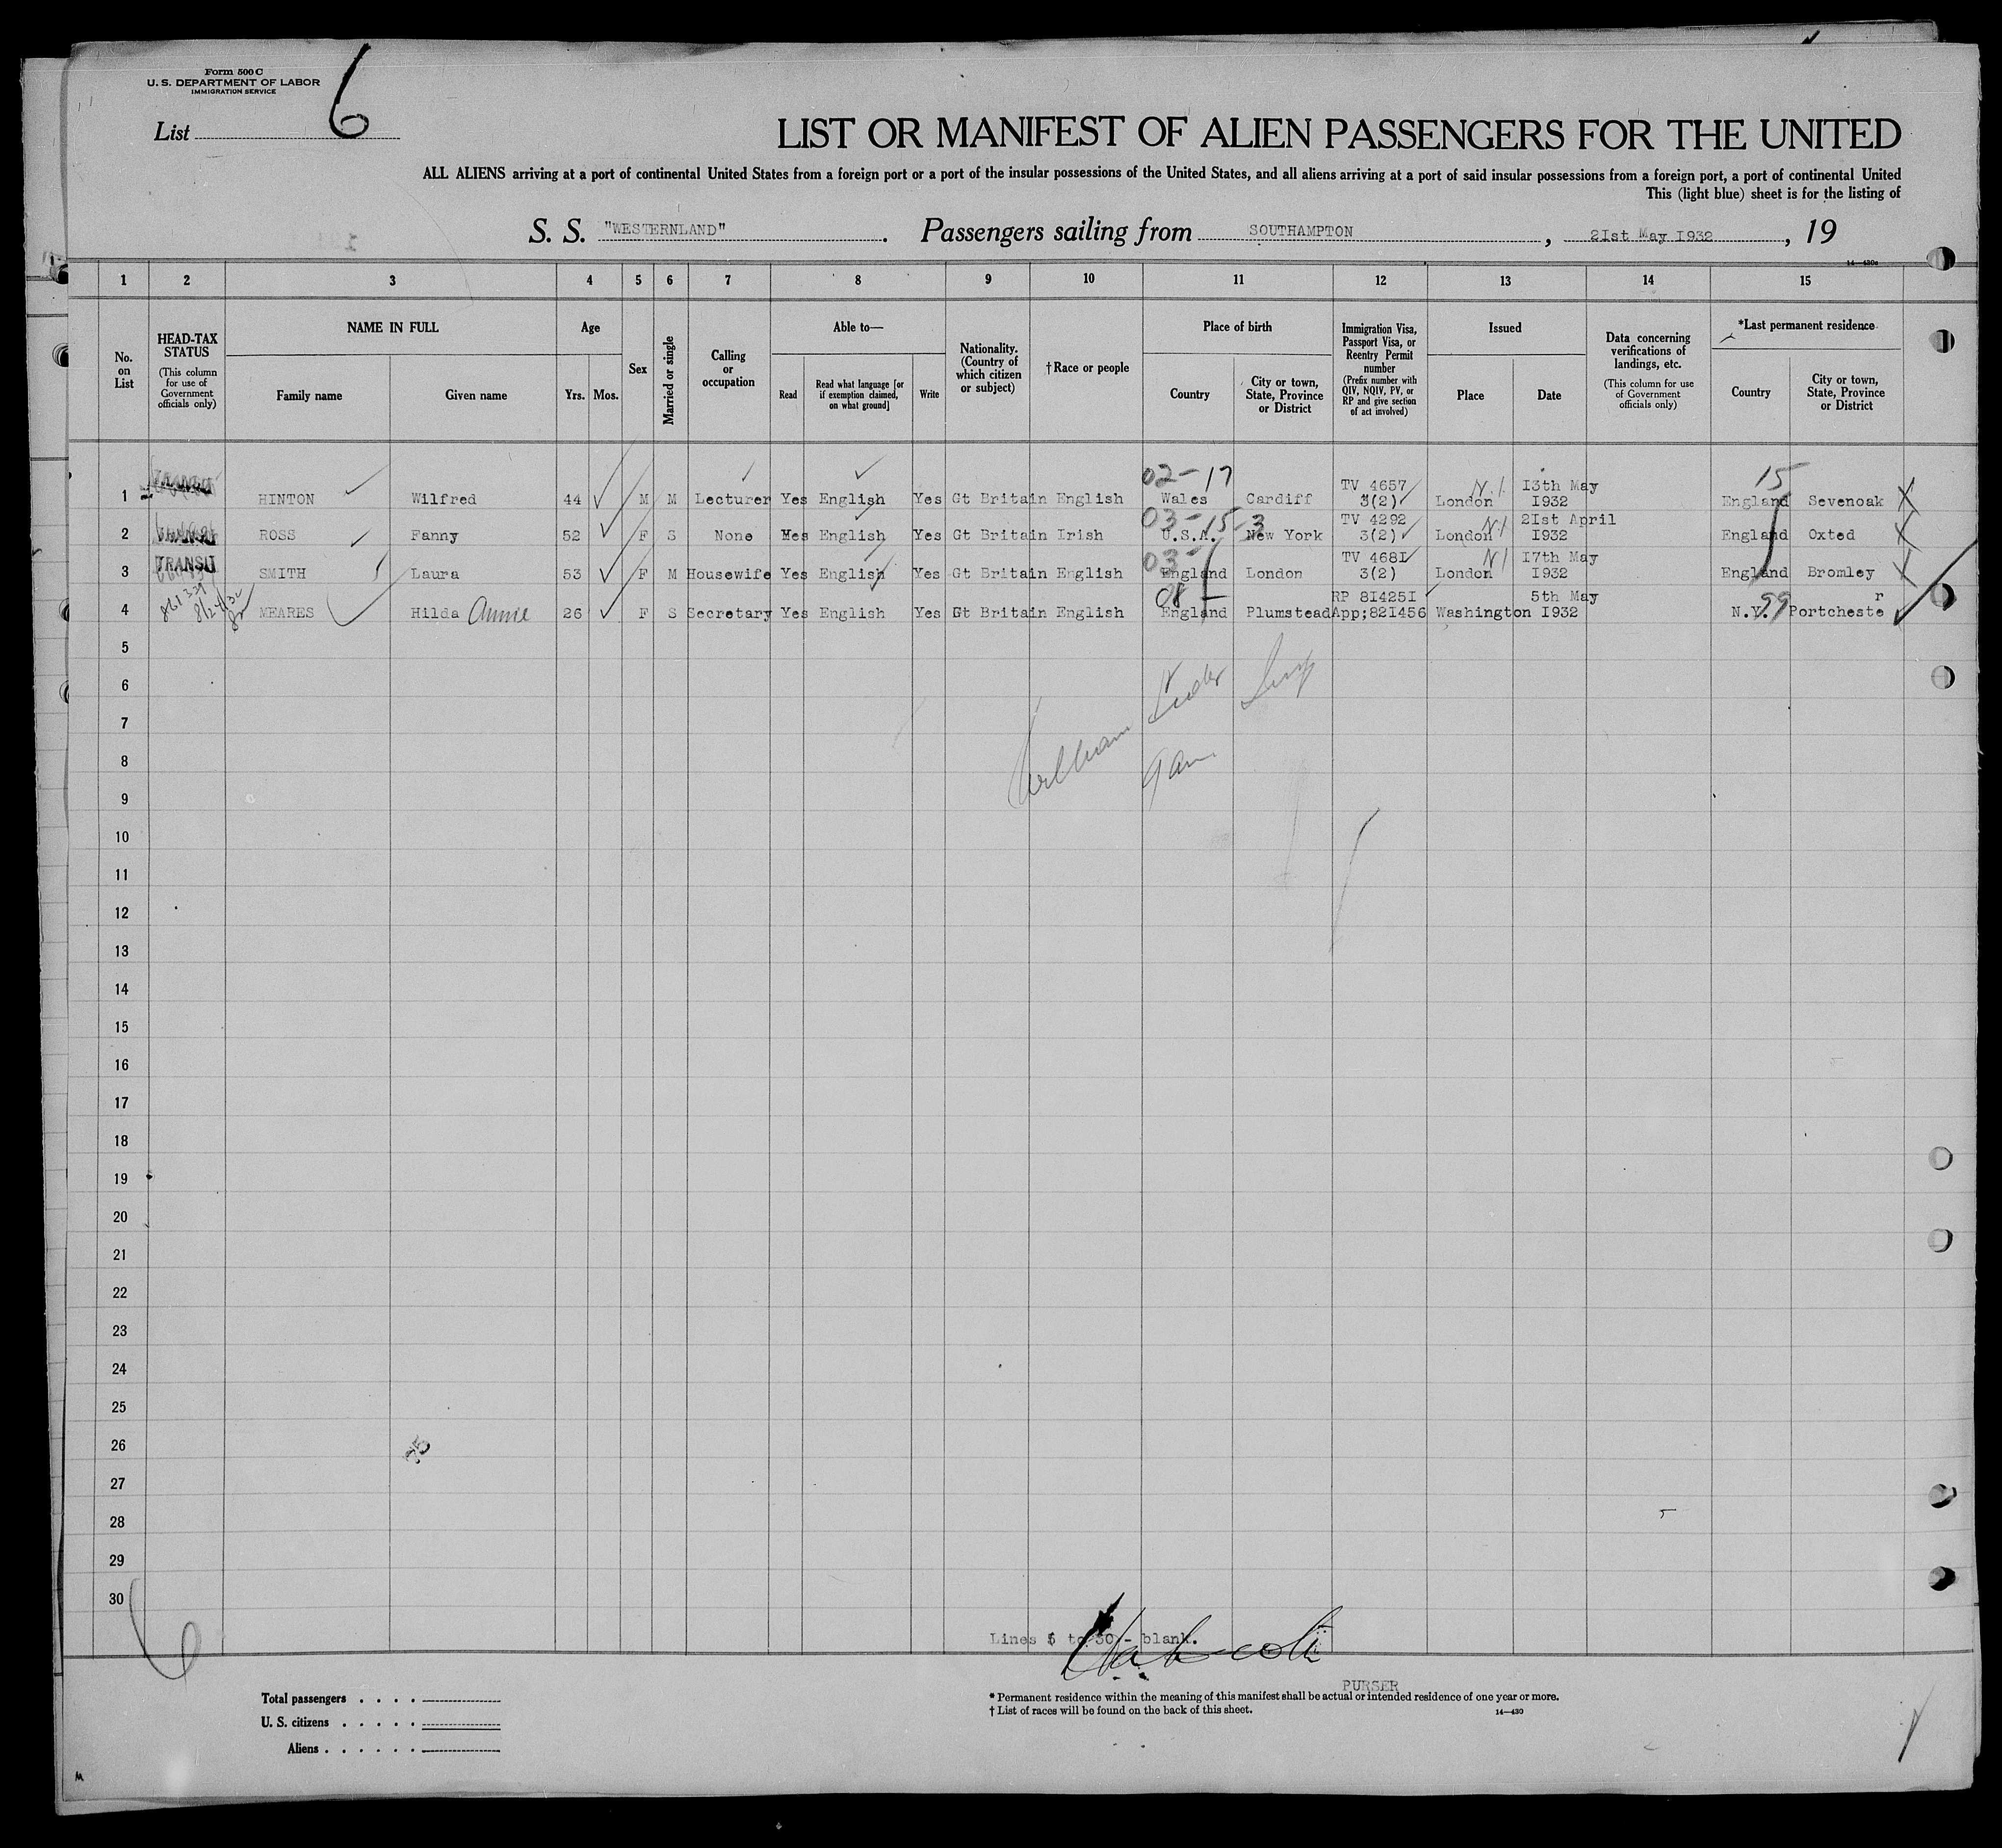 Form 500 C
U. S. DEPARTMENT OF LABOR
IMMIGRATION SERVICE
List 6
LIST OR MANIFEST OF ALIEN PASSENGERS FOR THE UNITED
ALL ALIENS arriving at a port of continental United States from a foreign port or a port of the insular possessions of the United States, and all aliens arriving at a port of said insular possessions from a foreign port, a port of continental United
This (light blue) sheet is for the listing of
S. S. "WESTERNLAND". Passengers sailing from SOUTHAMPTON, 2Ist May I932, 19
14—430a
1 2 3 4 5 6 7 8 9 10 11 12 13 14 15
No. on List
HEAD-TAX STATUS
(This column for use of Government officials only)
NAME IN FULL
Family name
Given name
Age
Yrs. Mos.
Sex
Married or single
Calling or occupation
Able to—
Read
Read what language [or if exemption claimed, on what ground]
Write
Nationality. (Country of which citizen or subject)
†Race or people
Place of birth
Country
City or town, State, Province or District
Immigration Visa, Passport Visa, or Reentry Permit number
(Prefix number with QIV, NQIV, PV, or RP and give section of act involved)
Issued
Place
Date
Data concerning verifications of landings, etc.
(This column for use of Government officials only)
*Last permanent residence
Country
City or town, State, Province or District
02-17 15
TV 4657 I3th May
1 HINTON Wilfred 44 M M Lecturer Yes English Yes Gt Britain English Wales Cardiff 3(2) London N.I. I932 England Sevenoak
03-15-3 TV 4292 2Ist April
2 ROSS Fanny 52 F S None Yes English Yes Gt Britain Irish U.S.A. New York 3(2) London I932 England Oxted
03- TV 468I I7th May
3 TRANSIT SMITH Laura 53 F M Housewife Yes English Yes Gt Britain English England London 3(2) London I932 England Bromley
08- RP 8I425I 5th May 99 r
4 MEARES Hilda Annie 26 F S Secretary Yes English Yes Gt Britain English England Plumstead App;82I456 Washington I932 N.Y. Portcheste
5
6
7
William
9 am
8
9
10
11
12
13
14
15
16
17
18
19
20
21
22
23
24
25
26
27
28
29
30
Lines 5 to 30 - blank.
PURSER
Total passengers . . . .
U. S. citizens . . . . .
Aliens . . . . . .
* Permanent residence within the meaning of this manifest shall be actual or intended residence of one year or more.
† List of races will be found on the back of this sheet.
14—430